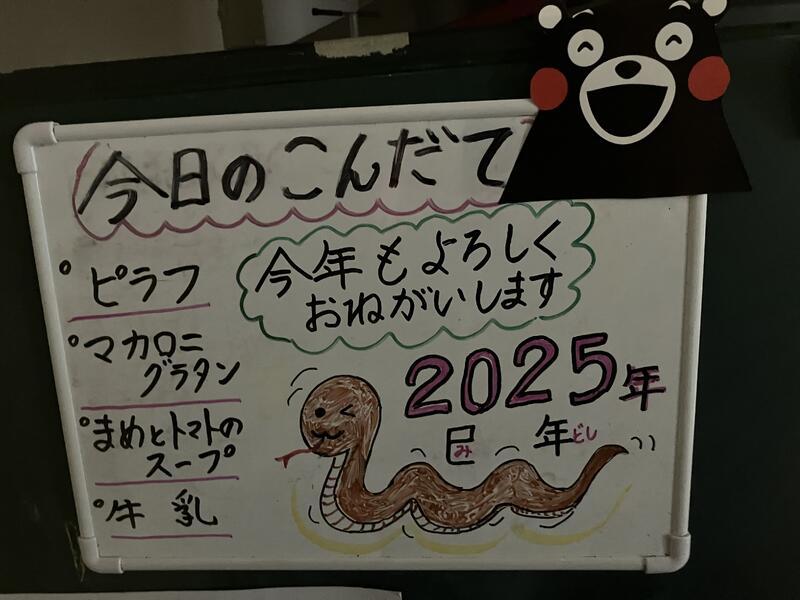 今日のこんだて
今年もよろしく
おねがいします
。ピラフ
。マカロニ
グラタン
。まめとトマトの
スープ
。牛乳
2025年
巳年
み どし